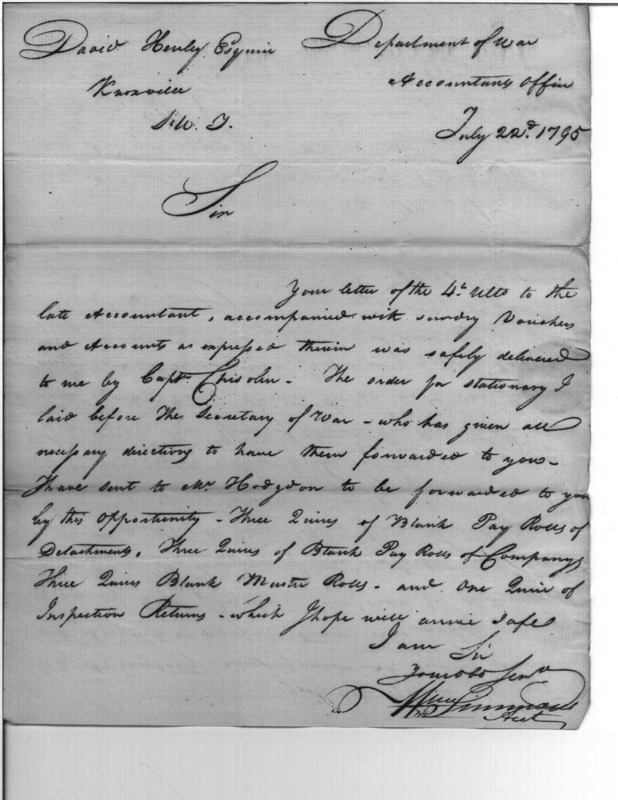 David Henley Esquire
Knoxville
S.W. T.
Department of War
Accountants Office
July 22d. 1795
Sir
Your letter of the 4th. Ulto to the
late Accountant, accompanied with sundry Vouchers
and Accounts as expressed therein was safely delivered
to me by Capt. Chisolm - The order for stationary I
laid before the Secretary of War - who has given all
necessary directions to have them forwarded to you -
I have sent to Mr. Hodgdon to be forwarded to you
by this Opportunity - Three Quires of Blank Pay Rolls of
Detachments, Three Quires of Blank Pay Rolls of Companys
Three Quires Blank Muster Rolls - and One Quire of
Inspection Returns - which I hope will arrive safe
I am Sir
Your Ob Serv
Wm Simmons
Acct